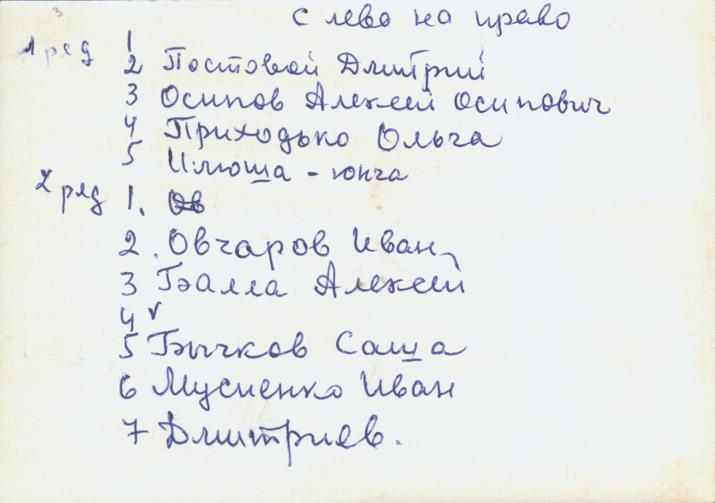 3
с лева на право
1 ряд 1
2 Постовой Дмитрий
3 Осипов Алексей Осипович
4 Приходько Ольга
5 Илюша - юнга
2 ряд 1. Ов
2. Овчаров Иван
3 Балла Алексей
4 v
5 Бычков Саша
6 Мусиенко Иван
7 Дмитриев.